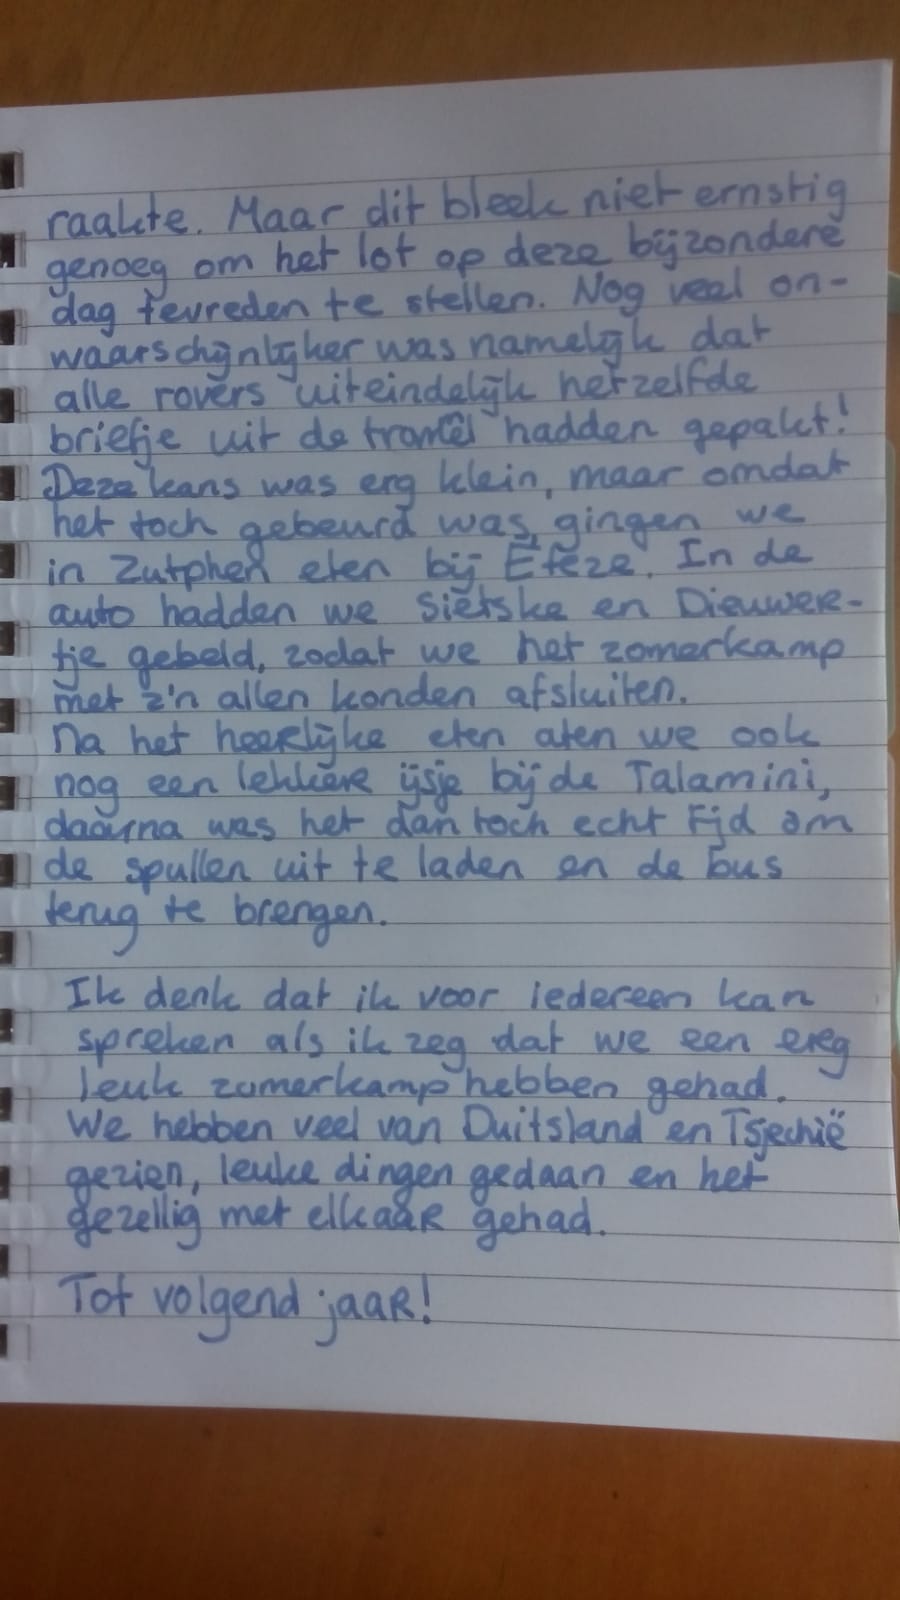 raakte. Maar dit bleek niet ernstig
genoeg om het lot op deze bijzondere
dag tevreden te stellen. Nog veel on-
waarschijnlijker was namelijk dat
alle rovers uiteindelijk hetzelfde
briefje uit de hadden gepakt!
Deze kans was erg klein, maar omdat
het toch gebeurd was, gingen we
in Zutphen eten bij Efeze. In de
auto hadden we Sietske en Dieuwer-
tje gebeld, zodat we het zomerkamp
met z'n allen konden afsluiten.
Na het heerlijke eten aten we ook
nog een lekkere ijsje bij de Talamini,
daarna was het dan toch echt tijd om
de spullen uit te laden en de bus
terug te brengen.
Ik denk dat ik voor iedereen kan
spreken als ik zeg dat we een ereg
leuk zomerkamp hebben gehad.
We hebben veel van Duitsland en Tsjechië
gezien, leuke dingen gedaan en het
gezellig met elkaar gehad.
Tot volgend jaar!